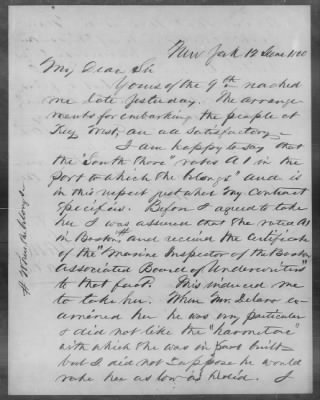 New York 12 June 1860
My Dear Sir
Yours of the 9th reached
me late yesterday. The arrange-
ments for embarking the people at
Key West, are all satisfactory—
I am happy to say that
the "South Shore" rates A1 in the
port to which she belongs # and is
in this respect just what my Contract
specifies. Before I agreed to take
her I was assured that she rated A1
in Boston, # and received the Certificate
of the "Marine Inspector of the Boston
Associated Board of Underwriters"
to that fact. This induced me
to take her. When Mr. Delano ex-
amined her he was very particular
& did not like the "hacmetac"
with which she was in part built—
but I did not suppose he would
rate her as low as he did. I
# Where she belongs